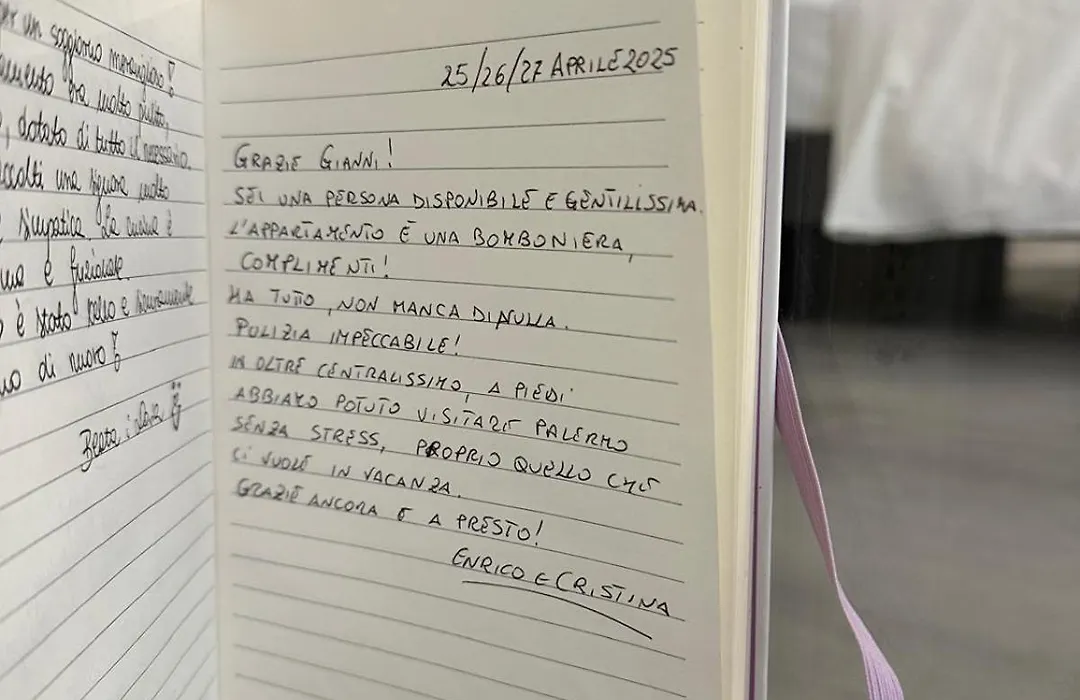 un soggiorno meraviglioso!
molto pulito,
dotato di tutto il necessario.
una signora molto
simpatica. La cucina è
è funzionale.
è stato bello e
di nuovo!
Beata i
25/26/27 APRILE 2025
GRAZIE GIANNI!
SEI UNA PERSONA DISPONIBILE E GENTILISSIMA.
L'APPARTAMENTO È UNA BOMBONIERA,
COMPLIMENTI!
HA TUTTO, NON MANCA DI NULLA.
PULIZIA IMPECCABILE!
IN OLTRE CENTRALISSIMO, A PIEDI
ABBIAMO POTUTO VISITARE PALERMO
SENZA STRESS, PROPRIO QUELLO CHE
CI VUOLE IN VACANZA.
GRAZIE ANCORA E A PRESTO!
ENRICO E CRISTINA